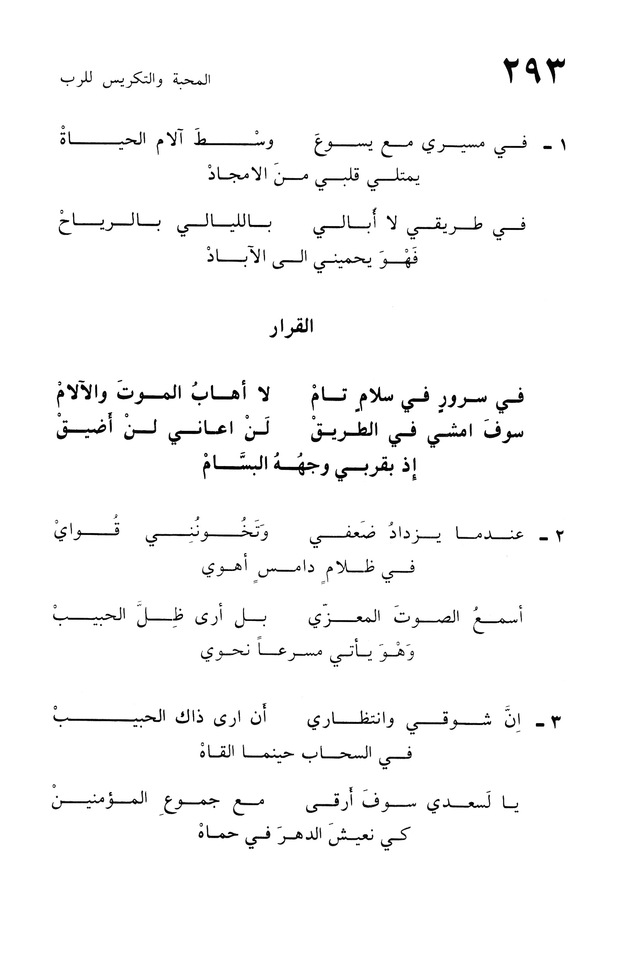 ٢٩٣
المحبة والتكريس للرب
١ ـ في مسيري مع يسوعَ وسْطَ آلام الحياةْ
يمتلي قلبي منَ الامجادْ
في طريقي لا أَبالي بالليالي بالرياحْ
فَهْوَ يحميني الى الآبادْ
القرار
في سرورٍ في سلامٍ تامْ لا أهابُ الموتَ والآلامْ
سوفَ امشي في الطريقْ لَنْ اعاني لنْ أَضيقْ
إذ بقربي وجهُهُ البسَّامْ
٢ ـ عندما يزدادُ ضَعفي وَتَخُونُنِي قُوايْ
في ظلامٍ دامسٍ أهوي
أسمعُ الصوتَ المعزّي بل أرى ظِلَّ الحبيبْ
وَهْوَ يأتي مسرعاً نحوي
٣ ـ إنَّ شوقي وانتظاري أن ارى ذاك الحبيبْ
في السحاب حينما القاهْ
يا لَسعدي سوفَ أَرقى مع جموعِ المؤمنينْ
كي نعيشَ الدهرَ في حماهْ